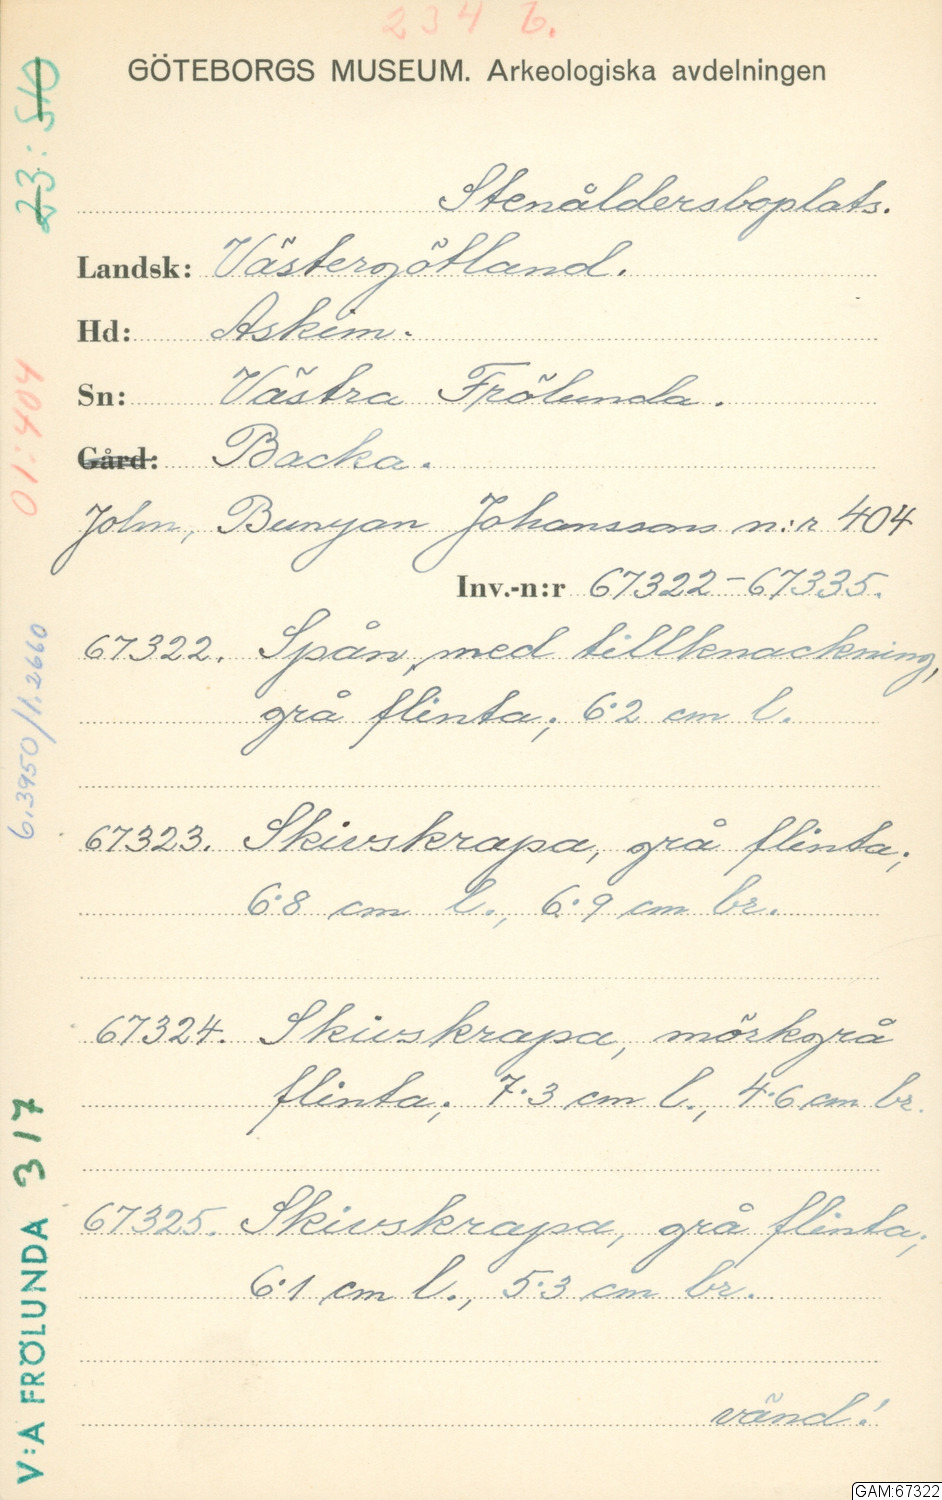 234 b.
GÖTEBORGS MUSEUM. Arkeologiska avdelningen
23:510
Stenåldersboplats.
Landsk: Västergötland.
Hd: Askim.
Sn: Västra Frölunda.
Gård: Backa.
01:404
John, Bunyan Johanssons n:r 404
Inv.-n:r 67322-67335.
67322. Spån, med tillknackning,
grå flinta; 6·2 cm l.
6.3950/1.2660
67323. Skivskrapa, grå flinta;
6·8 cm l., 6·9 cm br.
67324. Skivskrapa, mörkgrå
flinta; 7·3 cm l., 4·6 cm br.
67325. Skivskrapa, grå flinta;
6·1 cm l., 5·3 cm br.
V:A FRÖLUNDA 317
vänd!
GAM:67322